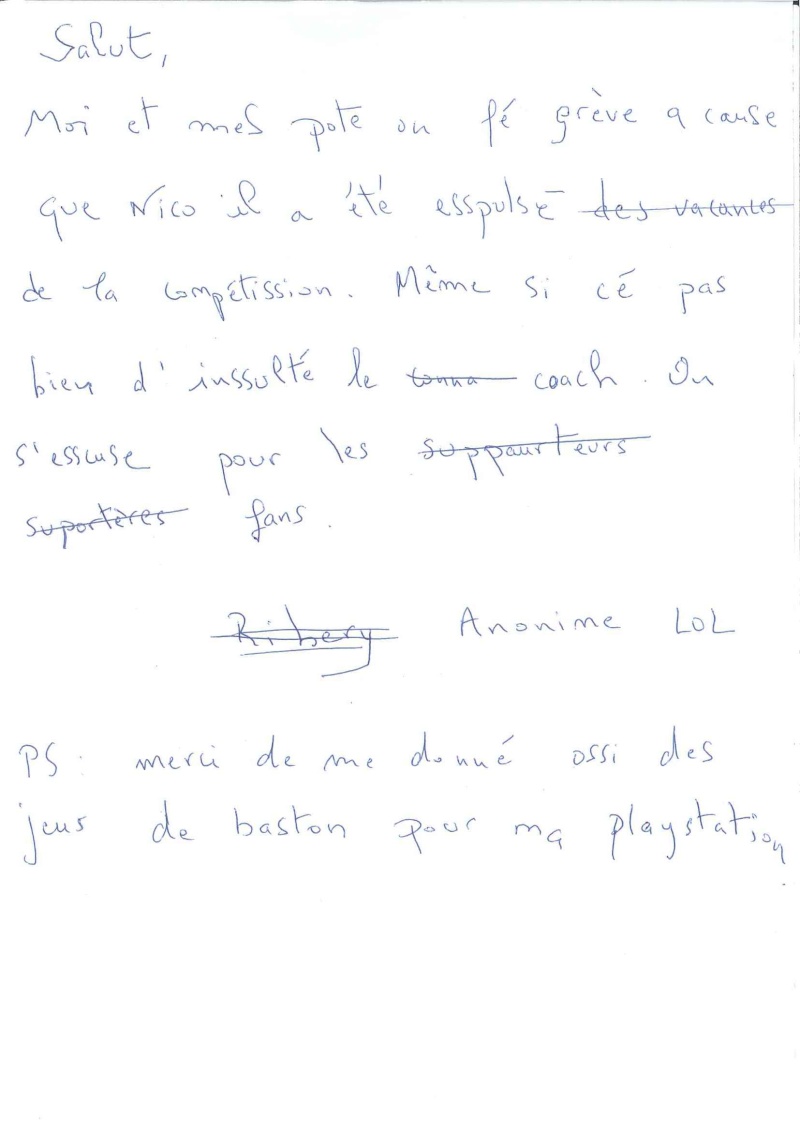 Salut,
Moi et mes pote on fé grève a cause
que Nico il a été esspulsé des vacances
de la compétission. Même si cé pas
bien d'inssulté le conna coach. On
s'esscuse pour les suppaurteurs
suportères fans.
Ribery Anonime LOL
PS : merci de me donné ossi des
jeus de baston pour ma playstation